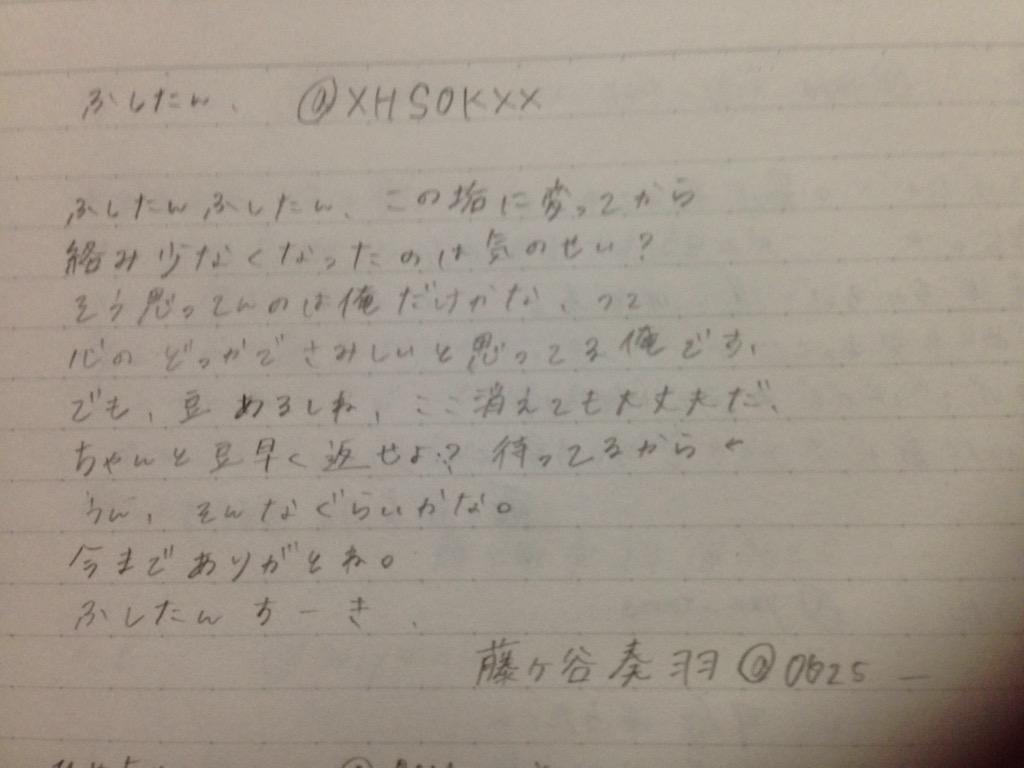 ふしたん、 @XHSOKXX
ふしたんふしたん、この垢に変ってから
絡み少なくなったのは気のせい?
そう思ってんのは俺だけかな、って
心のどっかでさみしいと思ってる俺です、
でも、豆あるしね、ここ消えても大丈夫だ、
ちゃんと豆早く返せよ?待ってるから←
うん、そんなぐらいかな。
今までありがとね。
ふしたんすーき、
藤ヶ谷奏羽 @0625_